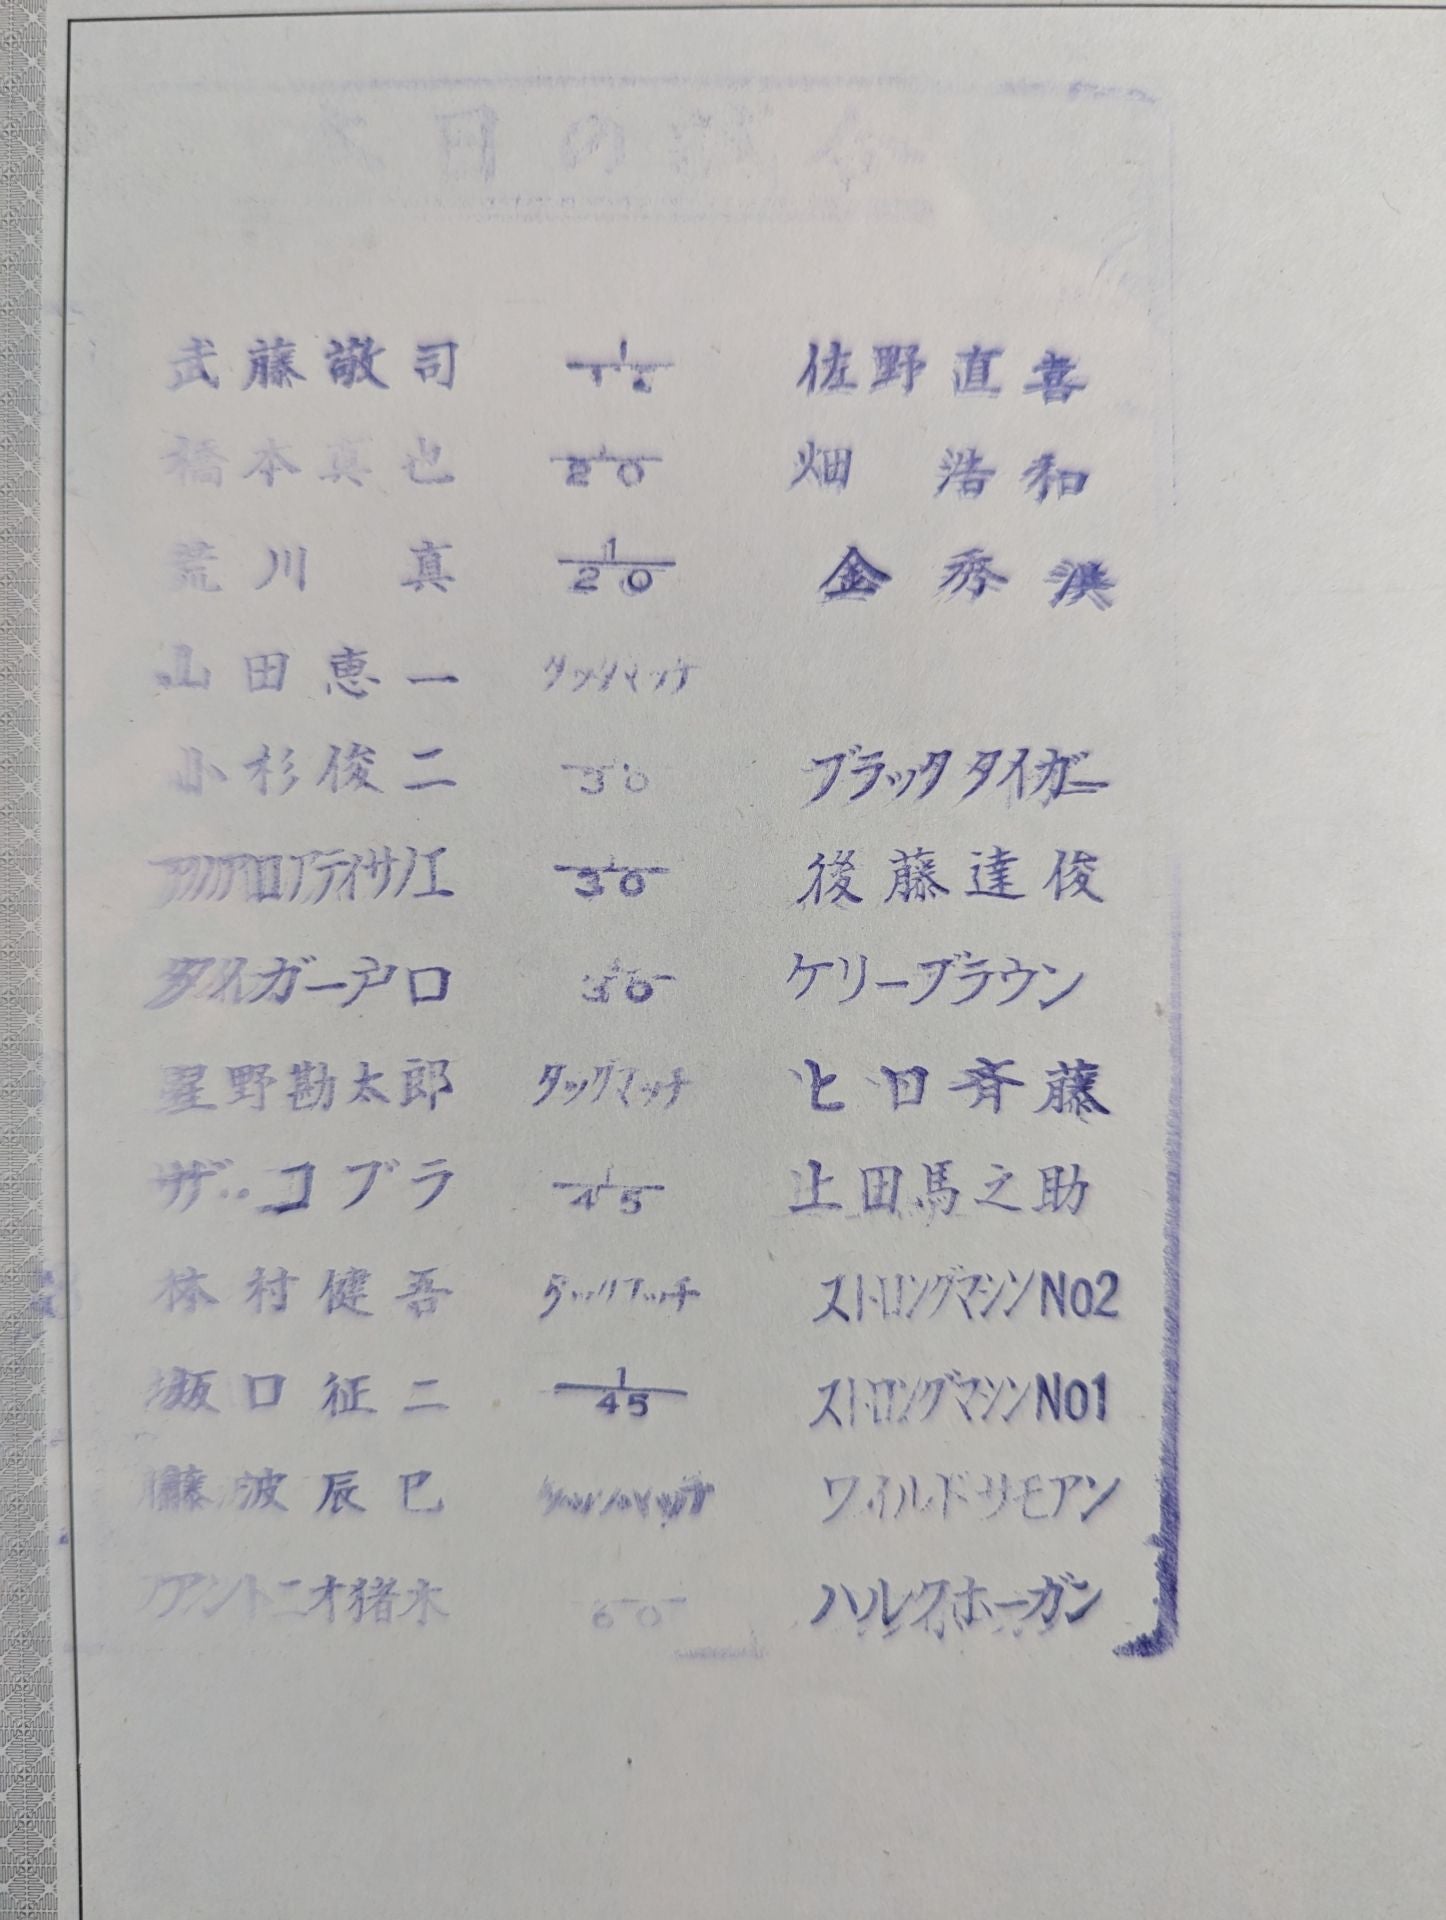 本日の試合
武藤敬司 1/15 佐野直喜
橋本真也 1/20 畑浩和
荒川真 1/20 金秀洪
山田恵一 タッグマッチ
小杉俊二 1/30 ブラックタイガー
アノアロアティサノエ 1/30 後藤達俊
タイガー戸口 1/30 ケリーブラウン
星野勘太郎 タッグマッチ ヒロ斉藤
ザ・コブラ 1/45 上田馬之助
木村健吾 タッグマッチ ストロングマシンNo2
坂口征二 1/45 ストロングマシンNo1
藤波辰巳 タッグマッチ ワイルドサモアン
アントニオ猪木 1/60 ハルクホーガン